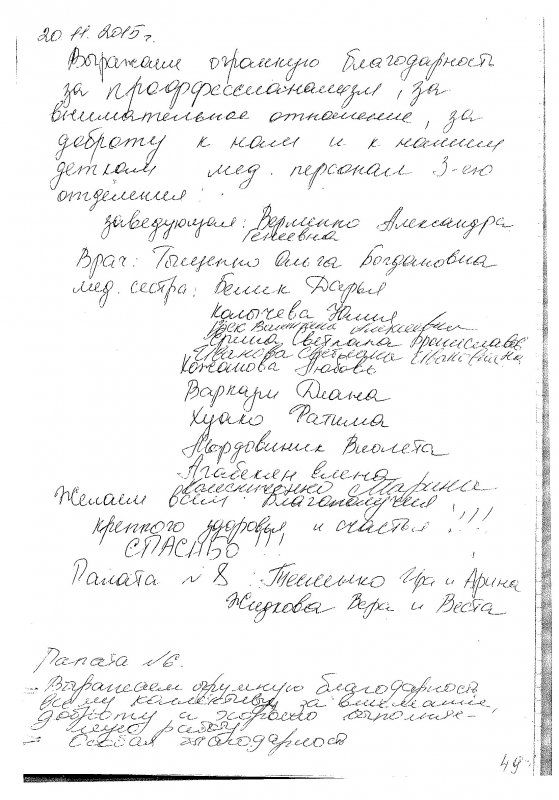 20.11.2015г.
Выражаем огромную благодарность
за проффессионализм, за
внимательное отношение, за
доброту к нам и к нашим
деткам мед. персонал 3-его
отделения:
заведующая: Александра
Врач: Тыщенко Ольга Богдановна
мед. сестра: Белик Дарья
Калычева Юлия
Алексеевна
Светлана Брониславов
Иванова Светлана Ивановна
Кажанова Любовь
Варкари Диана
Хуако Фатима
Мардовиник Виолета
Агабекян Елена
Колесниченко Марине
Желаем всем благополучия
крепкого здоровья и счастья!!!
СПАСИБО!!!
Палата №8: Тесленко Ира и Арина
Жидкова Вера и Веста
Палата №6.
- Выражаем огрумную благодарность
всему коллективу за внимание,
доброту и хорошо выполне-
работу
= Особая благодарность
49